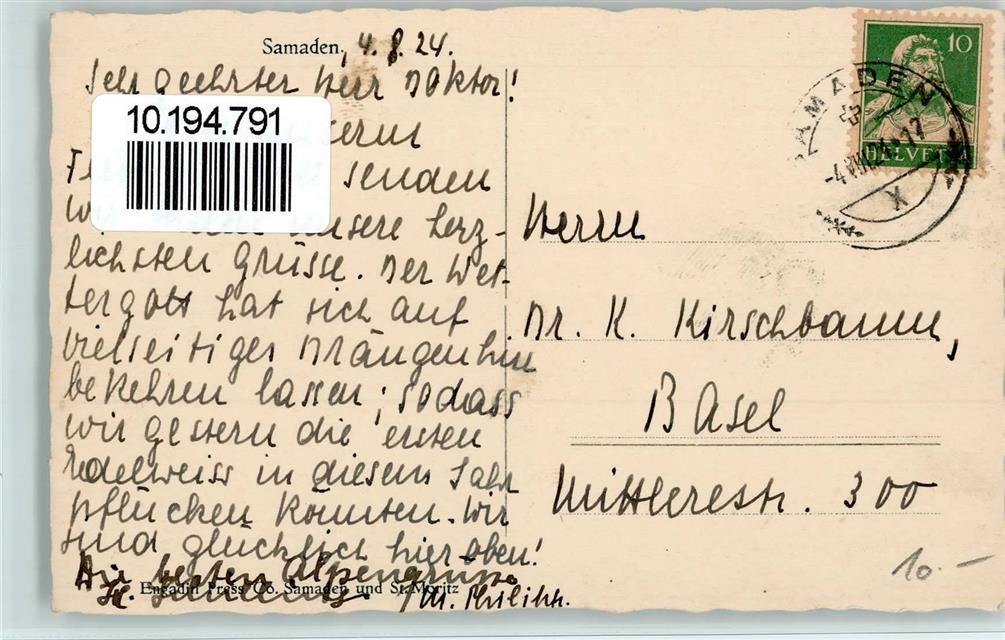 Samaden, 4.8.24.
Sehr geehrter Herr Doktor!
10.194.791
senden
unsere herz-
lichsten Grüsse. Der Wet-
tergott hat sich auf
vielseitiges Drängen hin
bekehren lassen; sodass
wir gestern die ersten
Edelweiss in diesem Jahr
pflücken konnten. Wir
sind glücklich hier oben!
Die besten Alpengrüsse
Engadin Press Co. Samaden und St. Moritz
M. Philipp.
10
HELVETIA
SAMADEN
-4.VIII.24.-17
X
Herrn
Dr. K. Kirschbaum,
Basel
Mittlerestr. 300
10.-